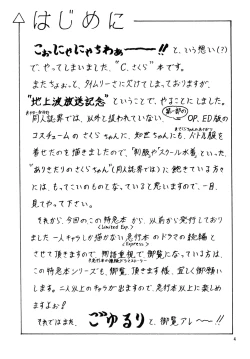 はじめに
こぉにゃにゃちわぁーーー!! と、いう想い(?)
で、やってしまいました、"C.さくら"本です。
またちょおっと、タイムリーさに欠けてしまっておりますが、
"地上波放送記念"ということで、やることにしました。
同人誌界では、以外と扱われていない、第一部のOP、ED版の
コスチュームのさくらちゃんに、知世ちゃんにも、バトル服を
着せたのを描きましたので、「制服やスクール水着といった、
"ありきたりのさくらちゃん"(同人誌界では)」に飽きている方々
には、もってこいのものでな、っていると思いますので、一目、
見てやって下さい。
それから、今回のこの特急本から、以前から発行しており
〈Limited Exp.〉
ました一人キャラしか描かない急行本のドラマの続編と
〈Express〉
させて頂きますので、物語重視で御覧になっている方は、
この特急本シリーズも、御覧頂きます様、宜しく御願い
します。二人以上のキャラが出ますので、急行本以上に楽しめ
ますよお?
それではまた、ごゆるりと、御覧アレ〜〜!!
4